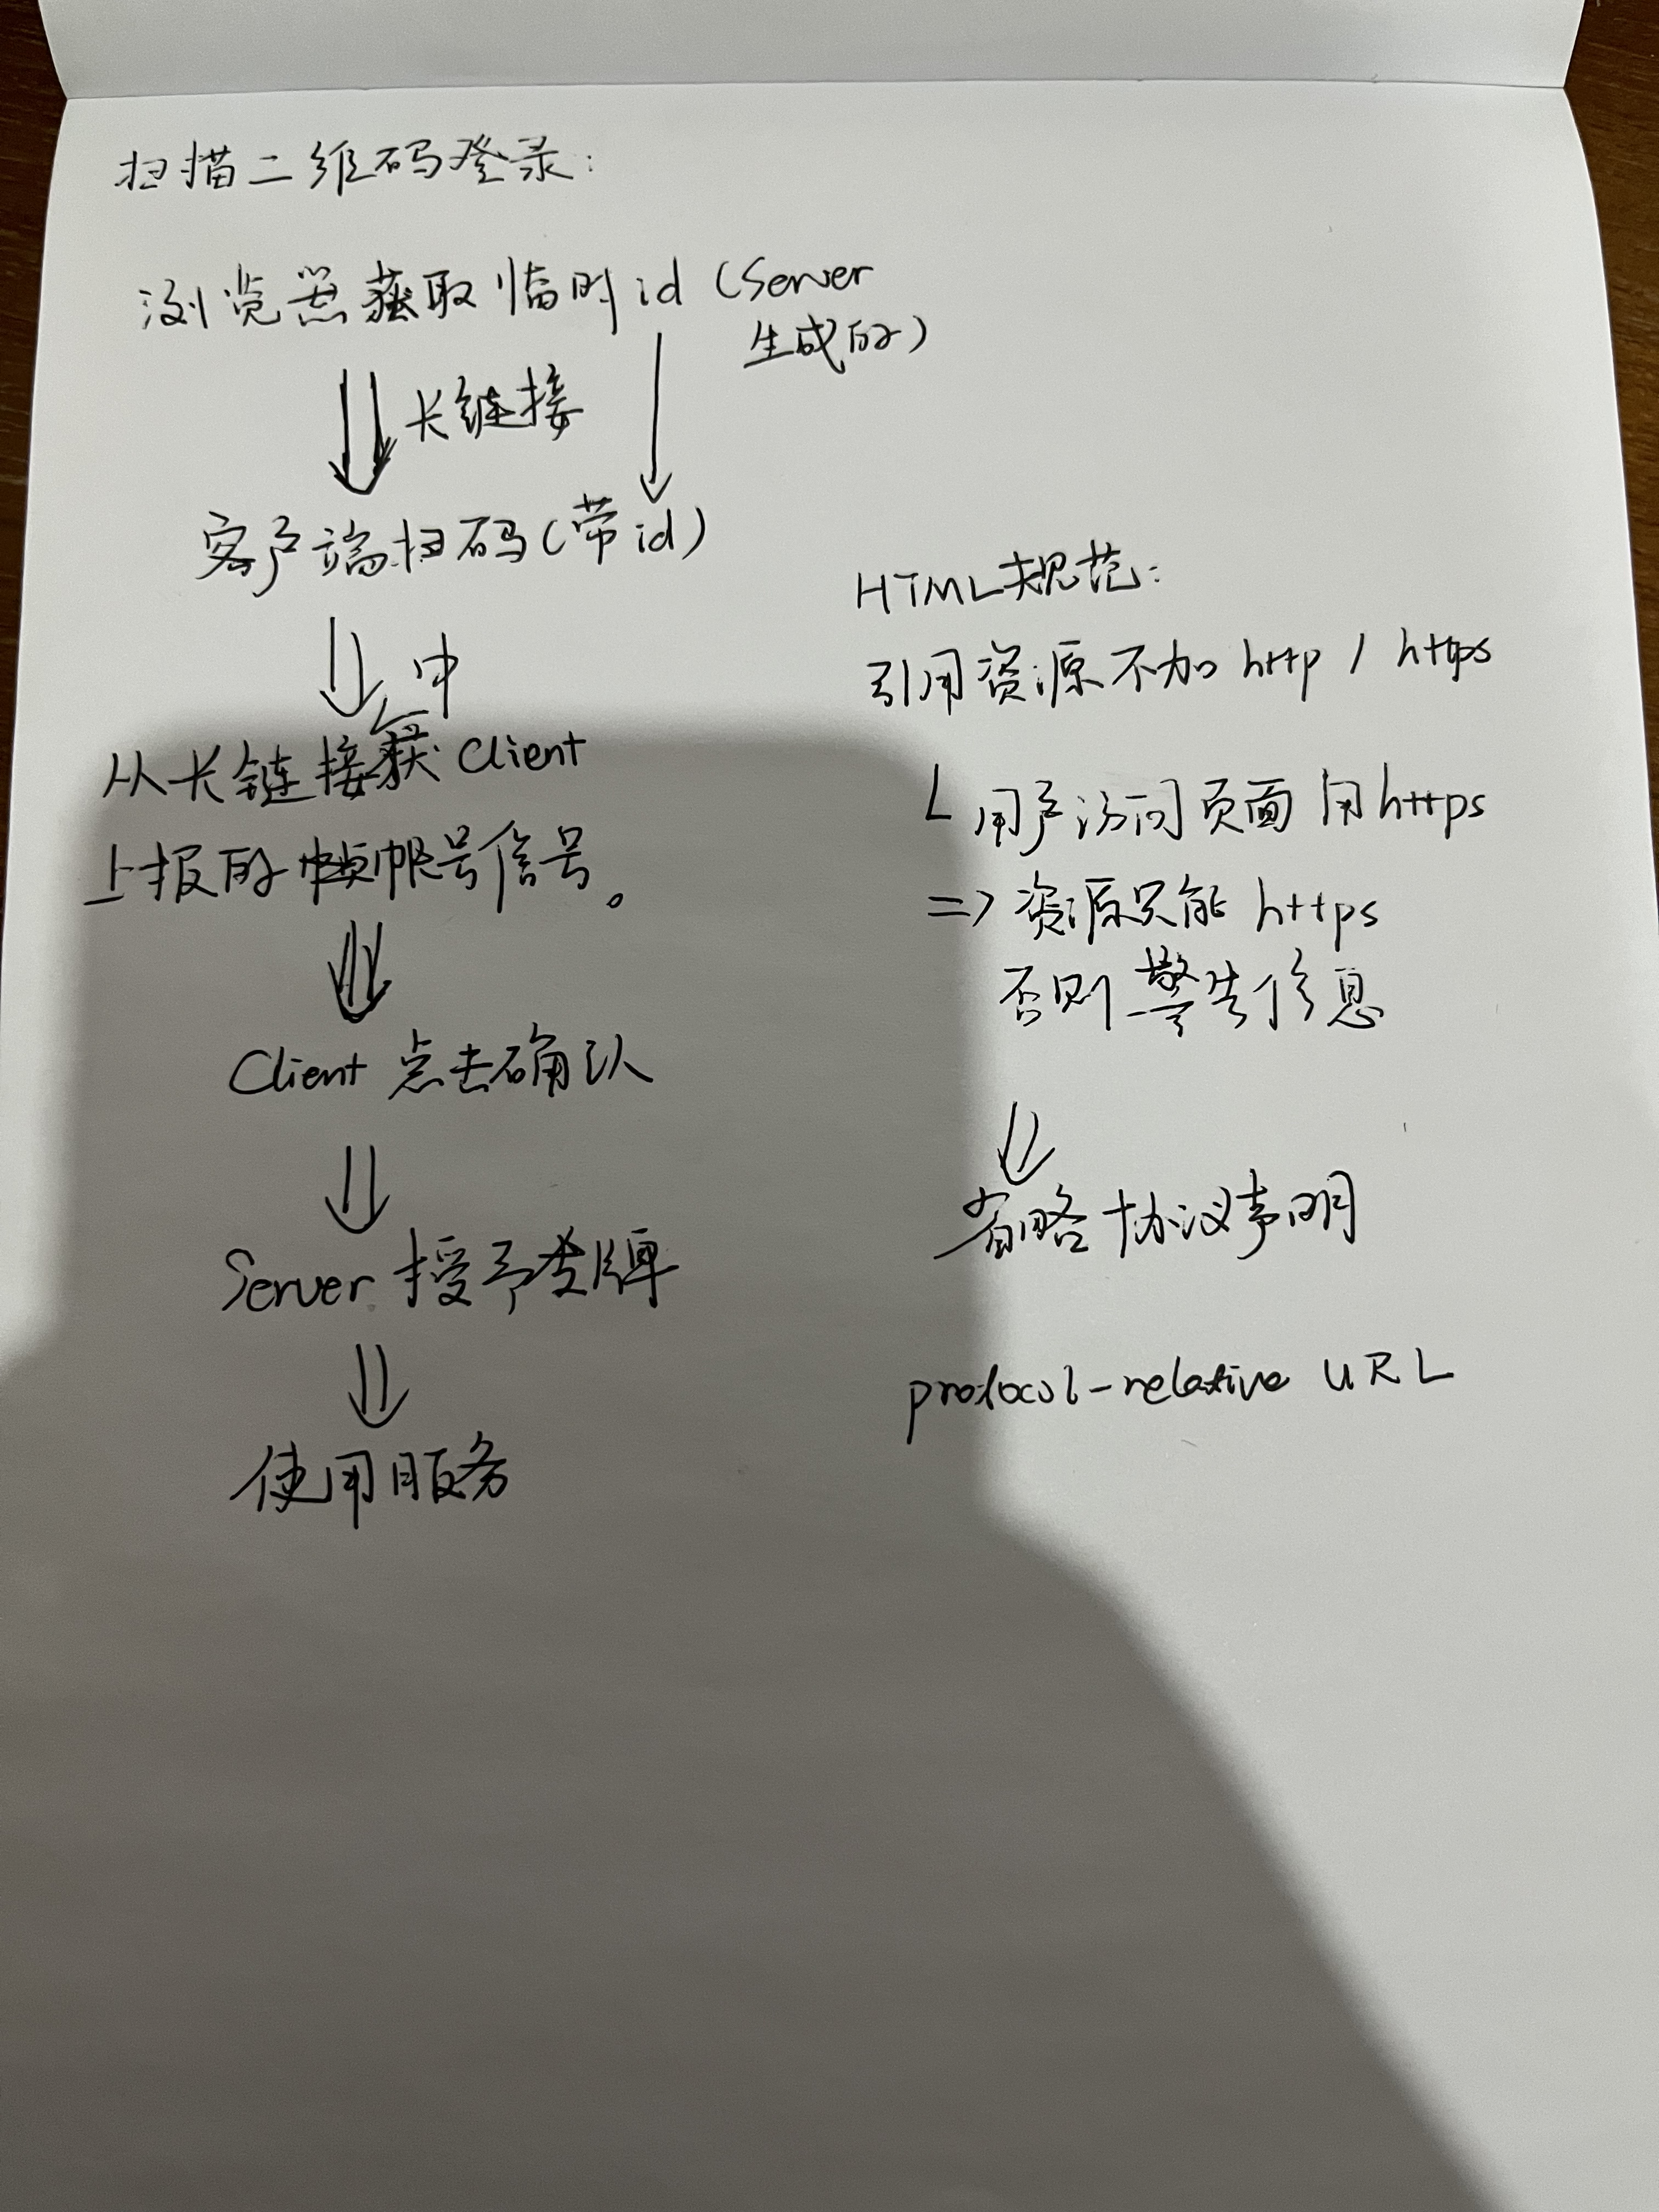 扫描二维码登录：
浏览器获取临时id（Server
生成的）
长链接
客户端扫码（带id）
中
从长链接获Client
上报的帐号信号。
Client 点击确认
Server 授予令牌
使用服务
HTML规范：
引用资源不加 http / https
用户访问页面用https
=> 资源只能 https
否则警告信息
省略协议声明
protocol-relative URL